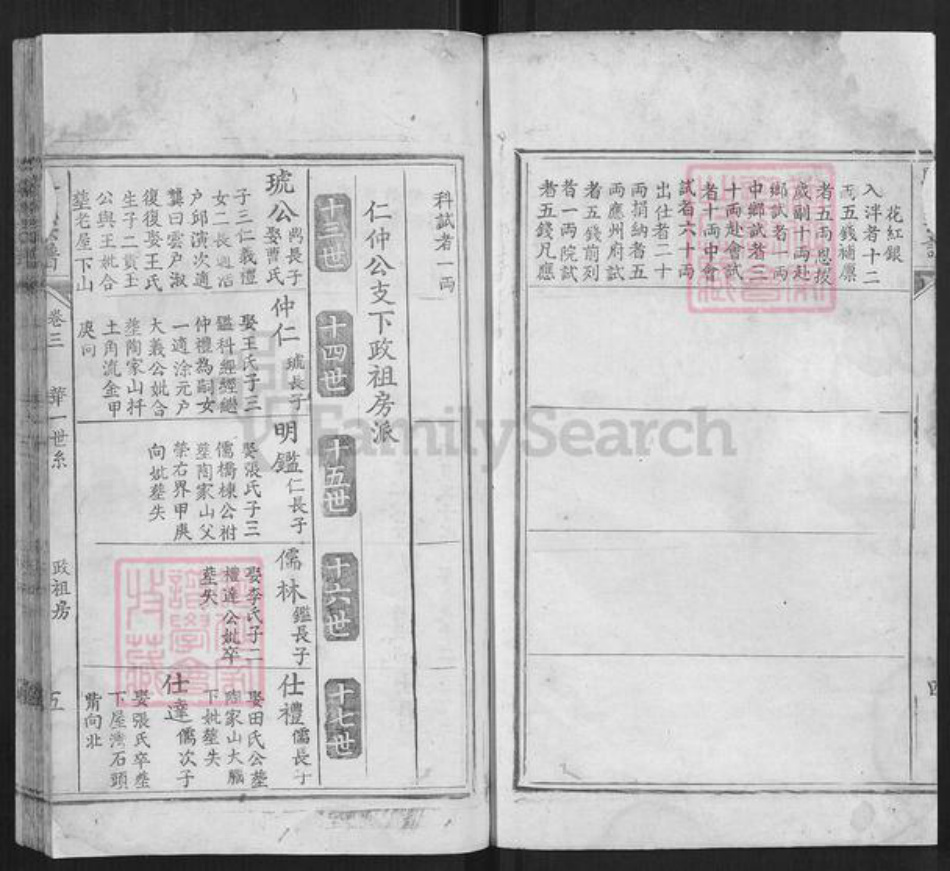 花紅銀
入泮者十二
両五錢補廪
者五両恩拔
歲副十両赴
鄉試者一両
中鄉試者三
十両赴會試
者十両中會
試者六十両
出仕者二十
両捐納者五
両應州府試
者五錢前列
者一両院試
者五錢凡應
科試者一両
仁仲公支下政祖房派
十三世
十四世
十五世
十六世
十七世
琥公
長子
娶曹氏
子三仁義禮
女二長適活
户邱演次適
龔曰雲户淑
復復娶王氏
生子二貢玉
公與王妣合
塟老屋下山
仲仁 琥長子
娶王氏子三
鑑科經經繼
仲禮為嗣女
一適涂元户
大義公妣合
塟陶家山扦
土角流金甲
庚向
明鑑 仁長子
娶張氏子三
儒橋棟公祔
塟陶家山父
塋右界甲庚
向妣塟失
儒林 鑑長子
娶李氏子二
禮達公妣卒
塟失
仕禮 儒長子
娶田氏公塟
陶家山大腦
下妣塟失
仕達 儒次子
娶張氏卒塟
下屋灣石頭
觜向北
卷三
華一世系
政祖房
五
四
FamilySearch